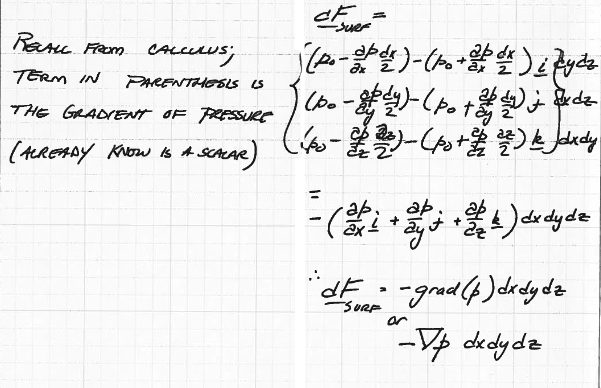 RECALL FROM CALCULUS;
TERM IN PARENTHESIS IS
THE GRADIENT OF PRESSURE
(ALREADY KNOW IS A SCALAR)
dF SURF =
{ (p₀ - ∂p/∂x dx/2) - (p₀ + ∂p/∂x dx/2) i } dydz
(p₀ - ∂p/∂y dy/2) - (p₀ + ∂p/∂y dy/2) j } dxdz
(p₀ - ∂p/∂z ∂z/2) - (p₀ + ∂p/∂z ∂z/2) k } dxdy
=
- (∂p/∂x i + ∂p/∂y j + ∂p/∂z k) dxdydz
∴ dF SURF = -grad(p) dxdydz
or
-∇p dxdydz